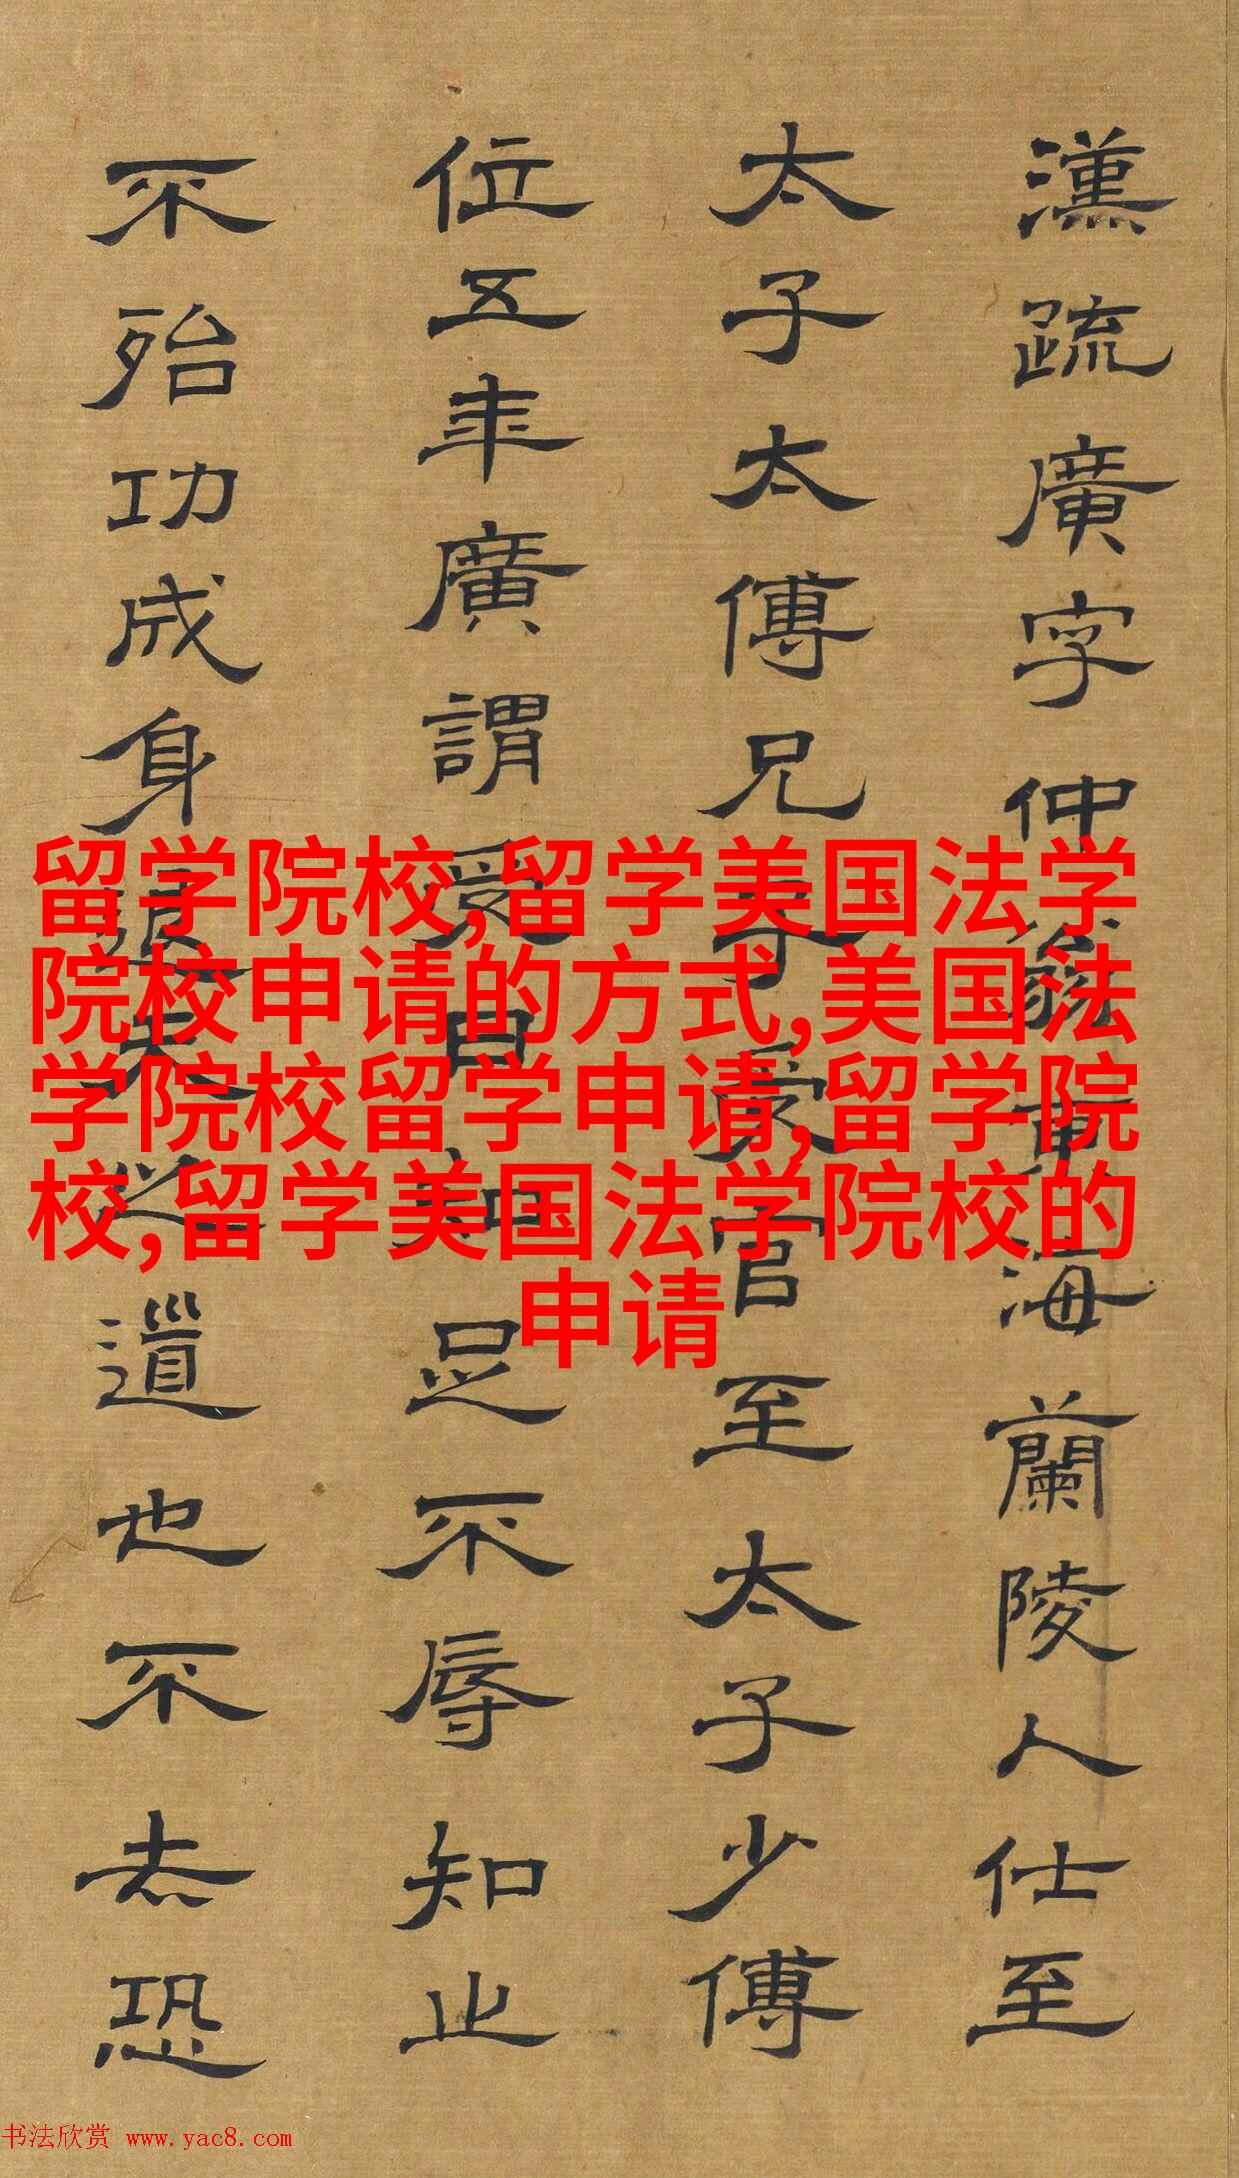 漢疏廣字仲翁東海蘭陵人仕至
太子太傅兄子受官至太子少傅
位五年廣謂受曰知足不辱知止
不殆功成身退天之道也不去恐
留学院校,留学美国法学
院校申请的方式,美国法
学院校留学申请,留学院
校,留学美国法学院校的
申请
书法欣赏 www.yac8.com